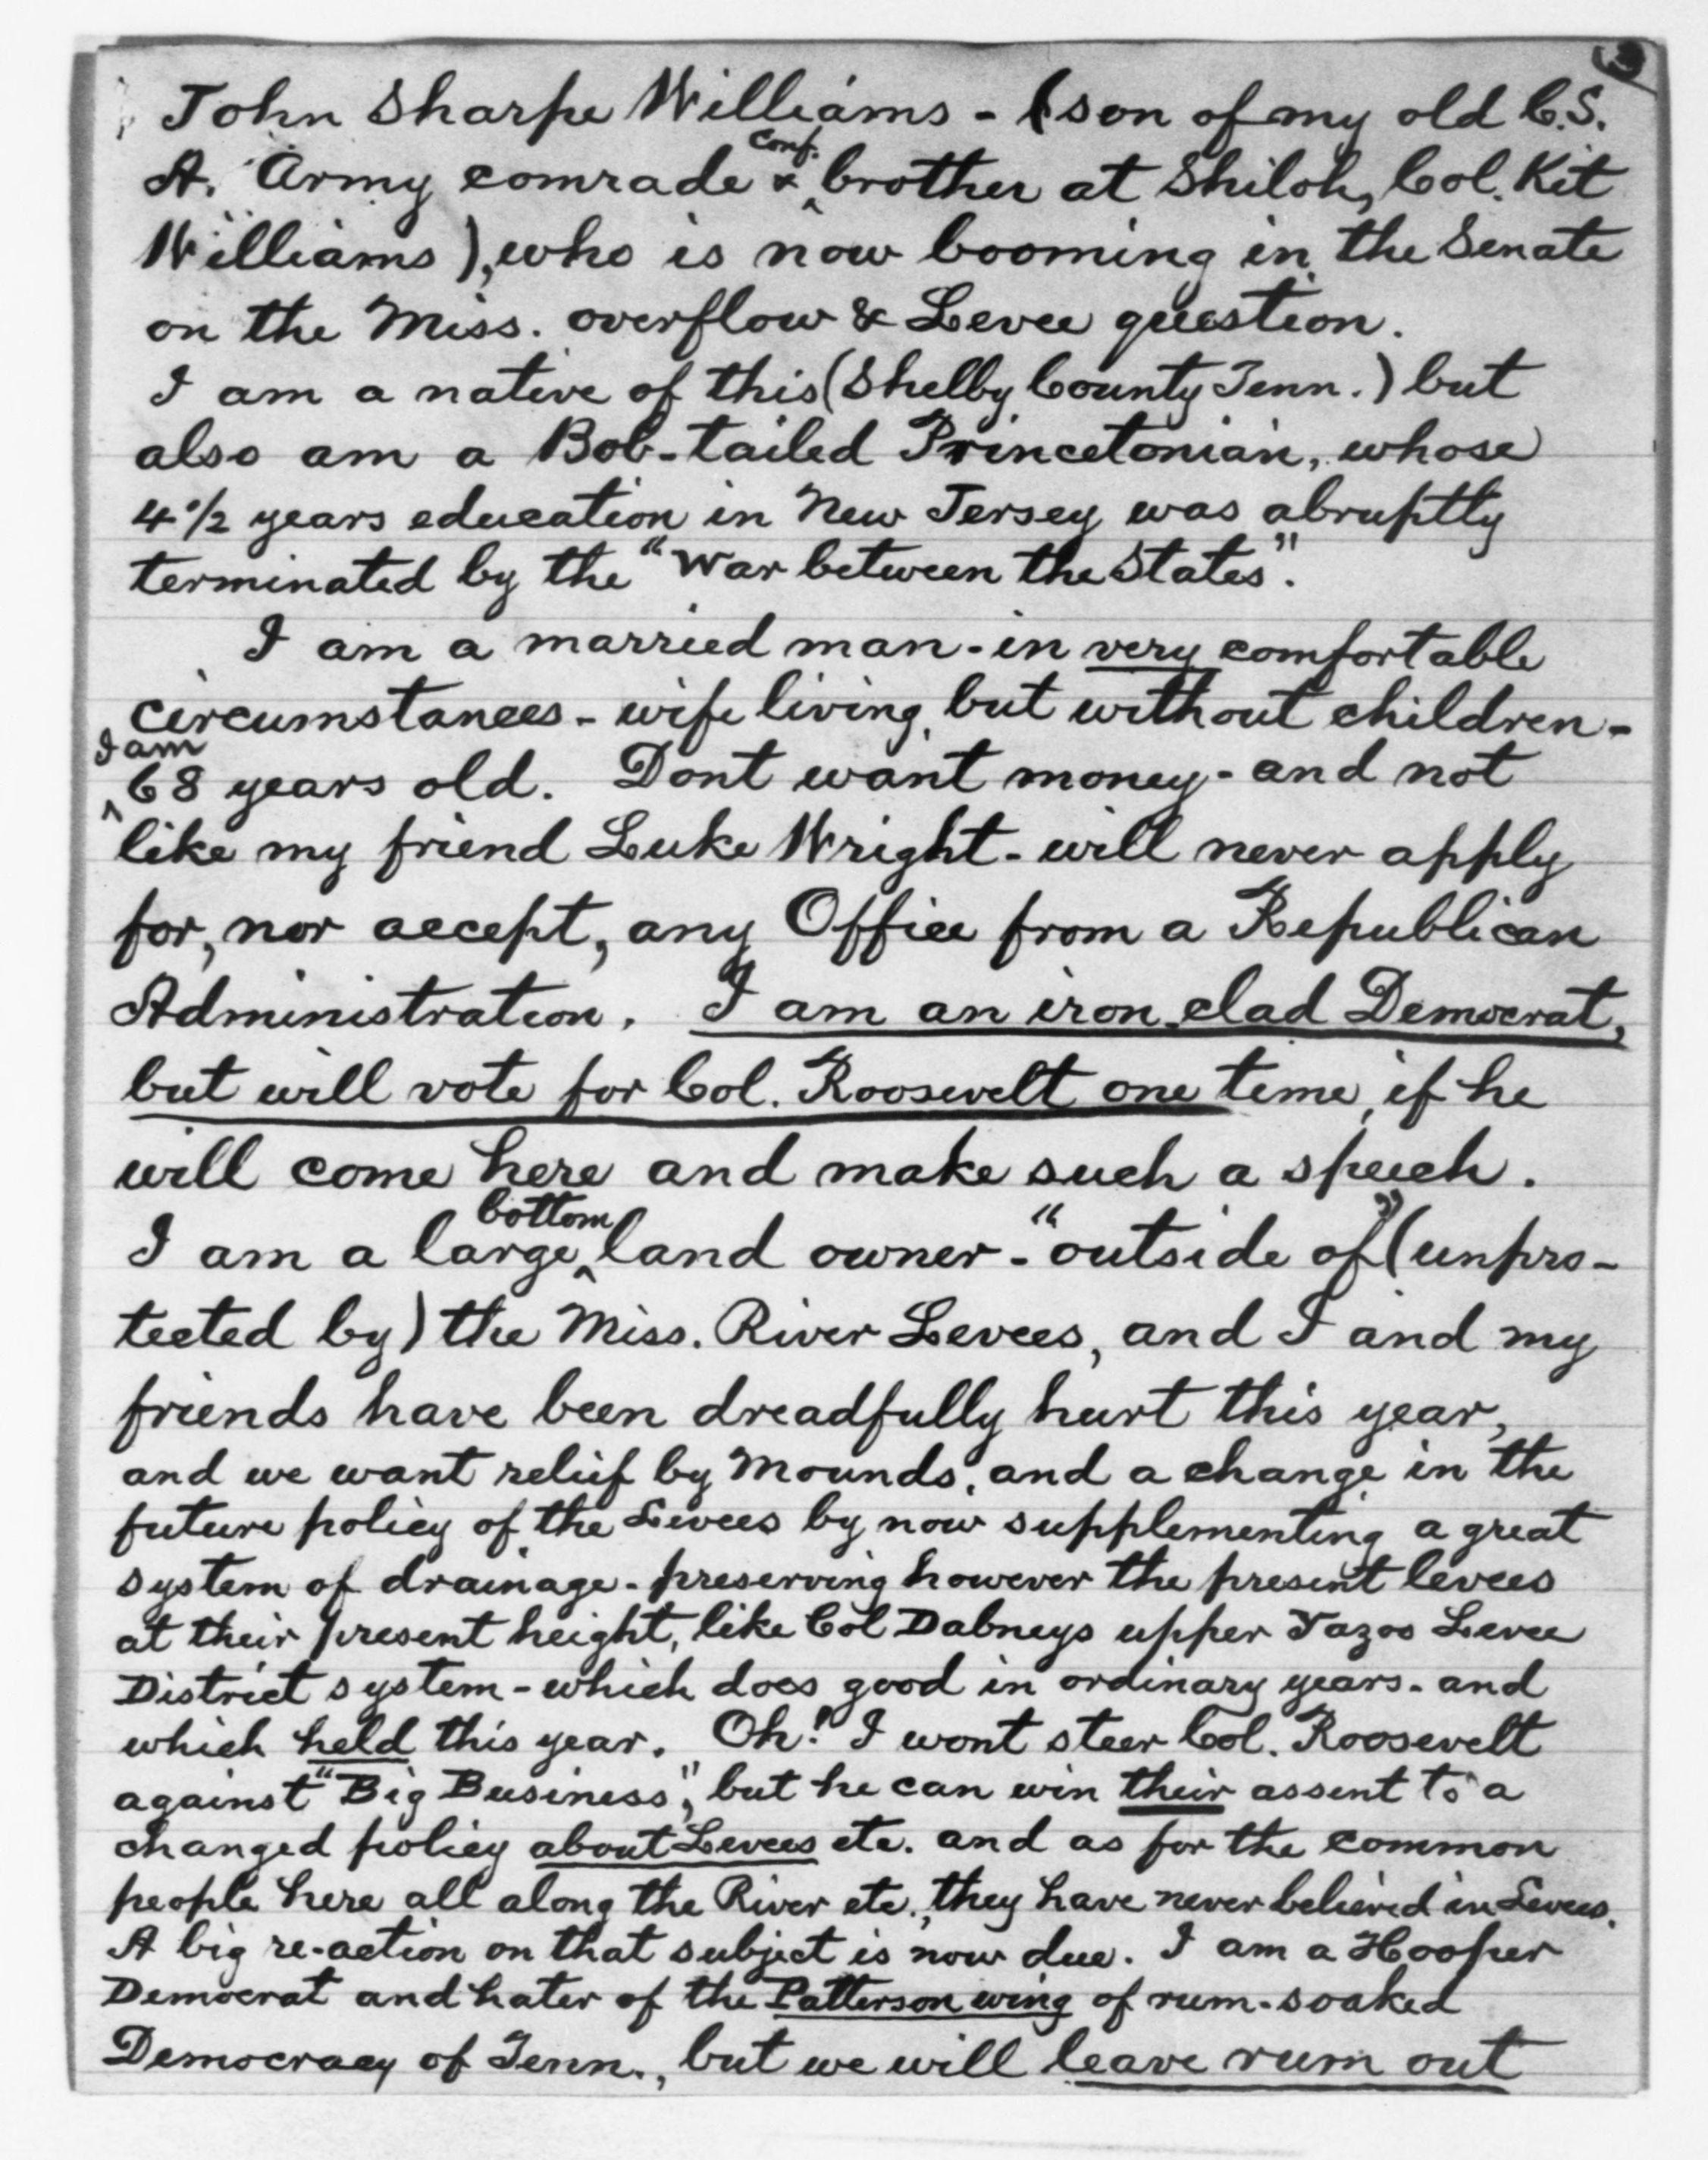 John Sharpe Williams - (son of my old C.S.
A. Army comrade & ^conf. brother at Shiloh, Col. Kit
Williams), who is now booming in the Senate
on the Miss. overflow & Levee question.
I am a native of this (Shelby County Tenn.) but
also am a Bob-tailed Princetonian, whose
4 1/2 years education in New Jersey was abruptly
terminated by the "War between the States".
I am a married man - in very comfortable
circumstances - wife living, but without children -
^I am 68 years old. Dont want money - and not
like my friend Luke Wright - will never apply
for, nor accept, any Office from a Republican
Administration. I am an iron-clad Democrat,
but will vote for Col. Roosevelt one time, if he
will come here and make such a speech.
I am a large ^bottom land owner - "outside of" (unpro-
tected by) the Miss. River Levees, and I and my
friends have been dreadfully hurt this year,
and we want relief by Mounds, and a change in the
future policy of the Levees by now supplementing a great
system of drainage - preserving however the present levees
at their present height, like Col Dabneys upper Yazoo Levee
District system - which does good in ordinary years - and
which held this year. Oh! I wont steer Col. Roosevelt
against "Big Business", but he can win their assent to a
changed policy about Levees etc. and as for the common
people here all along the River etc., they have never believed in Levees.
A big re-action on that subject is now due. I am a Hooper
Democrat and hater of the Patterson wing of rum-soaked
Democracy of Tenn., but we will leave rum out